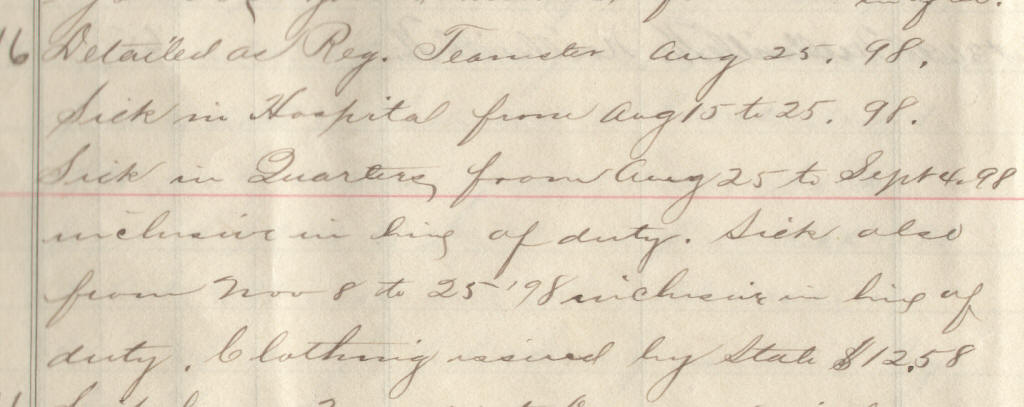 16 Detailed as Reg. Teamster Aug 25. 98.
Sick in Hospital from Aug 15 to 25. 98.
Sick in Quarters, from Aug 25 to Sept 4. 98
inclusive in line of duty. Sick also
from Nov 8 to 25 '98 inclusive in line of
duty. Clothing issued by State $12.58